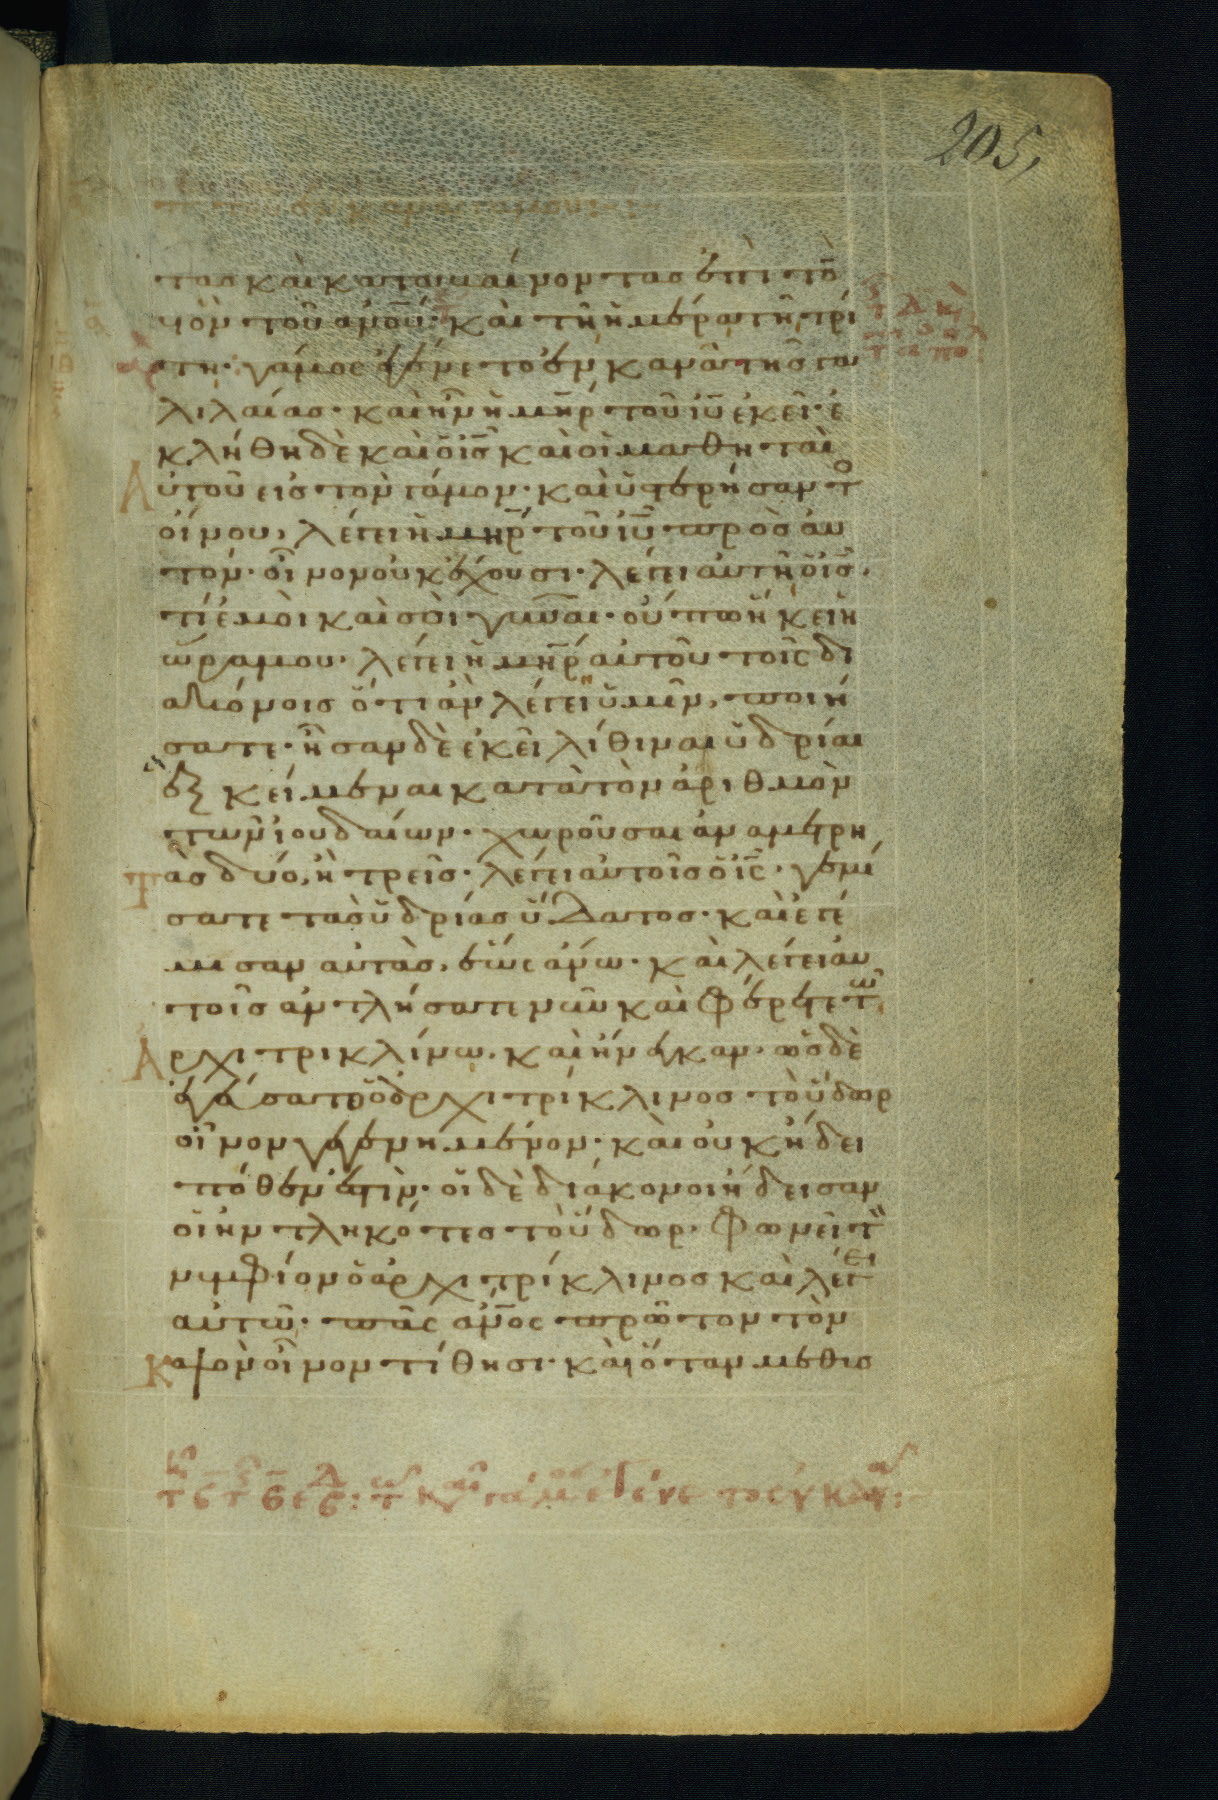 205,
τας καὶ καταβαίνοντας ἐπὶ τὸν
υἱὸν τοῦ ἀνου· καὶ τῆ ἡμέρα τῆ τρί
τη· γάμος ἐγένετο ἐν κανᾶ τῆς γα
λιλαίας· καὶ ἦν ἡ μηρ τοῦ ιυ ἐκεῖ· ἐ
κλήθη δὲ καὶ ὁ ις καὶ οἱ μαθηταὶ
Αὐτοῦ εἰς τὸν γάμον· καὶ ὑστερήσαντο
οἴνου, λέγει ἡ μηρ τοῦ ιυ πρὸς αὐ
τόν· οἶνον οὐκ ἔχουσι· λέγει αὐτῆ ὁ ις.
τί ἐμοὶ καὶ σοὶ γύναι· οὔπω ἥκει ἡ
ὥρα μου· λέγει ἡ μηρ αὐτοῦ τοῖς δι
ακόνοις ὅτι ἂν λέγει ὑμῖν, ποιή
σατε· ἦσαν δὲ ἐκεῖ λίθιναι ὑδρίαι
ἓξ κείμεναι κατὰ τὸν ἀριθμὸν
τῶν ἰουδαίων· χωροῦσαι ἀνὰ μετρη
Τὰς δύο, ἢ τρεῖς· λέγει αὐτοῖς ὁ ις· γεμί
σατε τὰς ὑδρίας ὕδατος· καὶ ἐγέ
μισαν αὐτὰς, ἕως ἄνω· καὶ λέγει αὐ
τοῖς ἀντλήσατε νῦν καὶ φέρετε τῶ
Ἀρχιτρικλίνω· καὶ ἤνεγκαν· ὡς δὲ
ἐγεύσατο ὁ ἀρχιτρίκλινος τὸ ὕδωρ
οἶνον γεγενημένον· καὶ οὐκ ἤδει
πόθεν ἐστίν· οἱ δὲ διάκονοι ἤδεισαν
οἱ ἠντληκότες τὸ ὕδωρ· φωνεῖ τὸν
νυμφίον ὁ ἀρχιτρίκλινος καὶ λέγει
αὐτῶ· πᾶς ἀνος πρῶτον τὸν
Καλὸν οἶνον τίθησι· καὶ ὅταν μεθυσ